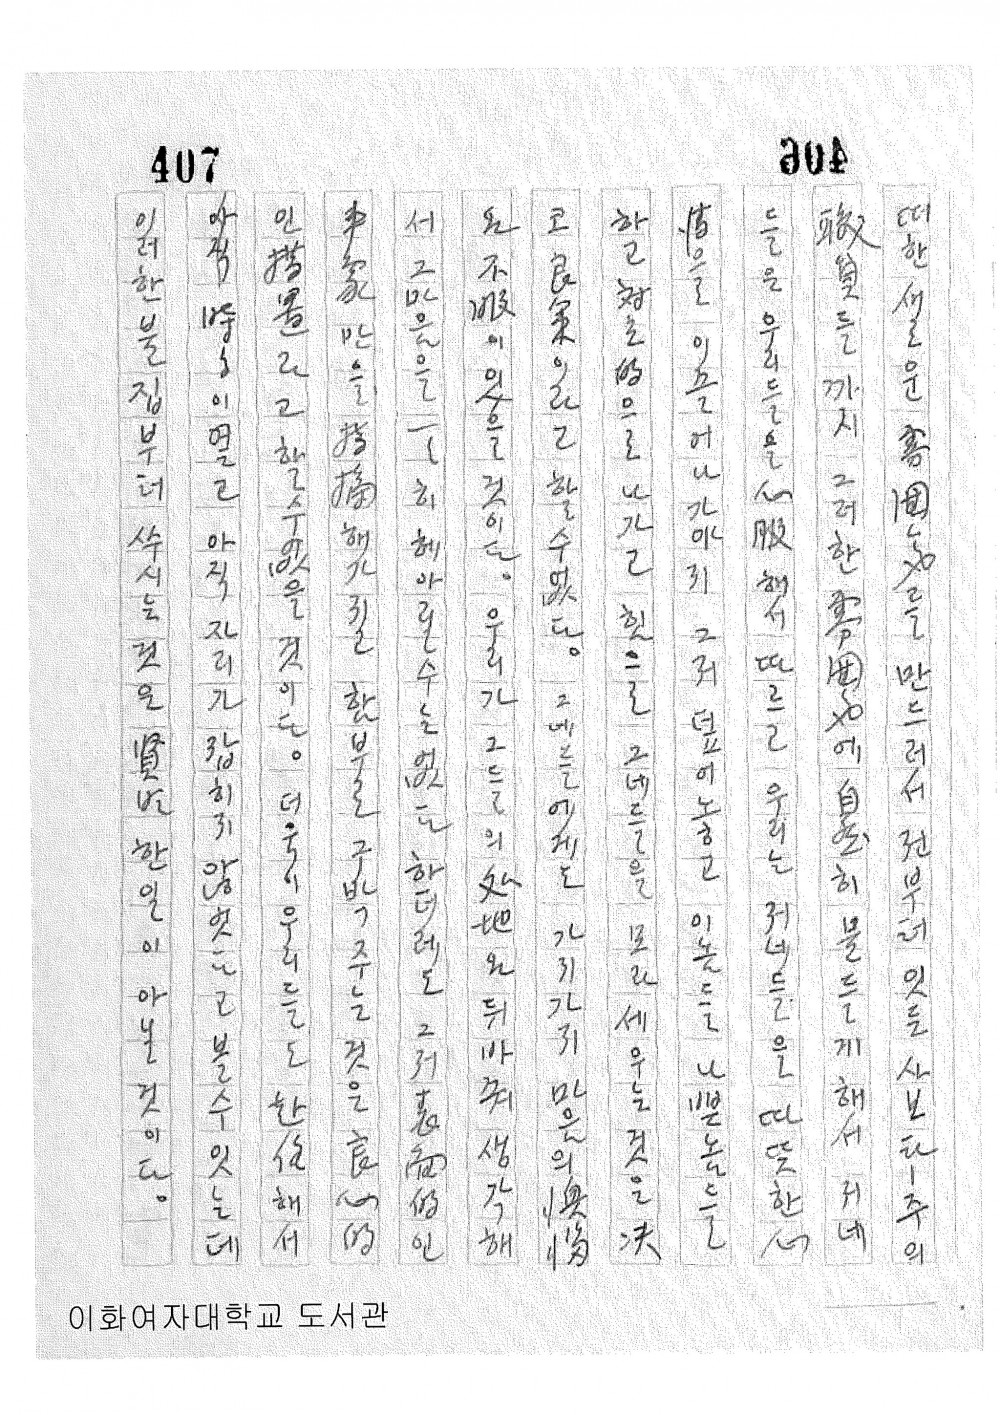 407
406
떠한 새로운 雰囲氣를 만드러서 전부터 잇든 사보타-주의
職員들까지 그러한 雰囲氣에 自然히 물들게 해서 저네
들은 우리들을 心服해서 따르고 우리는 저네들을 따뜻한 心
情을 이끌어나가야지 그저 덮어놓고 이놈들 나쁜놈들
하고 対立的으로 나가고 힛으로 그네들을 모라세우는 것은 決
코 良策이라고 할수없다. 그네들에게도 가지가지 마음의 懊惱
와 不服이 잇을것이다. 우리가 그들의 処地와 뒤바꿔 생각해
서 그마음을 一一히 헤아릴수는 없다 하더레도 그저 表面的인
事象만을 指摘해가지고 함부로 구박주는 것은 良心的
인 措置라고 할수없을 것이다. 더욱이 우리들도 한 해서
아직 時 이 열고 아직 자리가 잡히지 않엇다고 볼수잇는데
이러한 불집부터 쑤시는 것은 賢明한일이 아닐것이다.
이화여자대학교 도서관